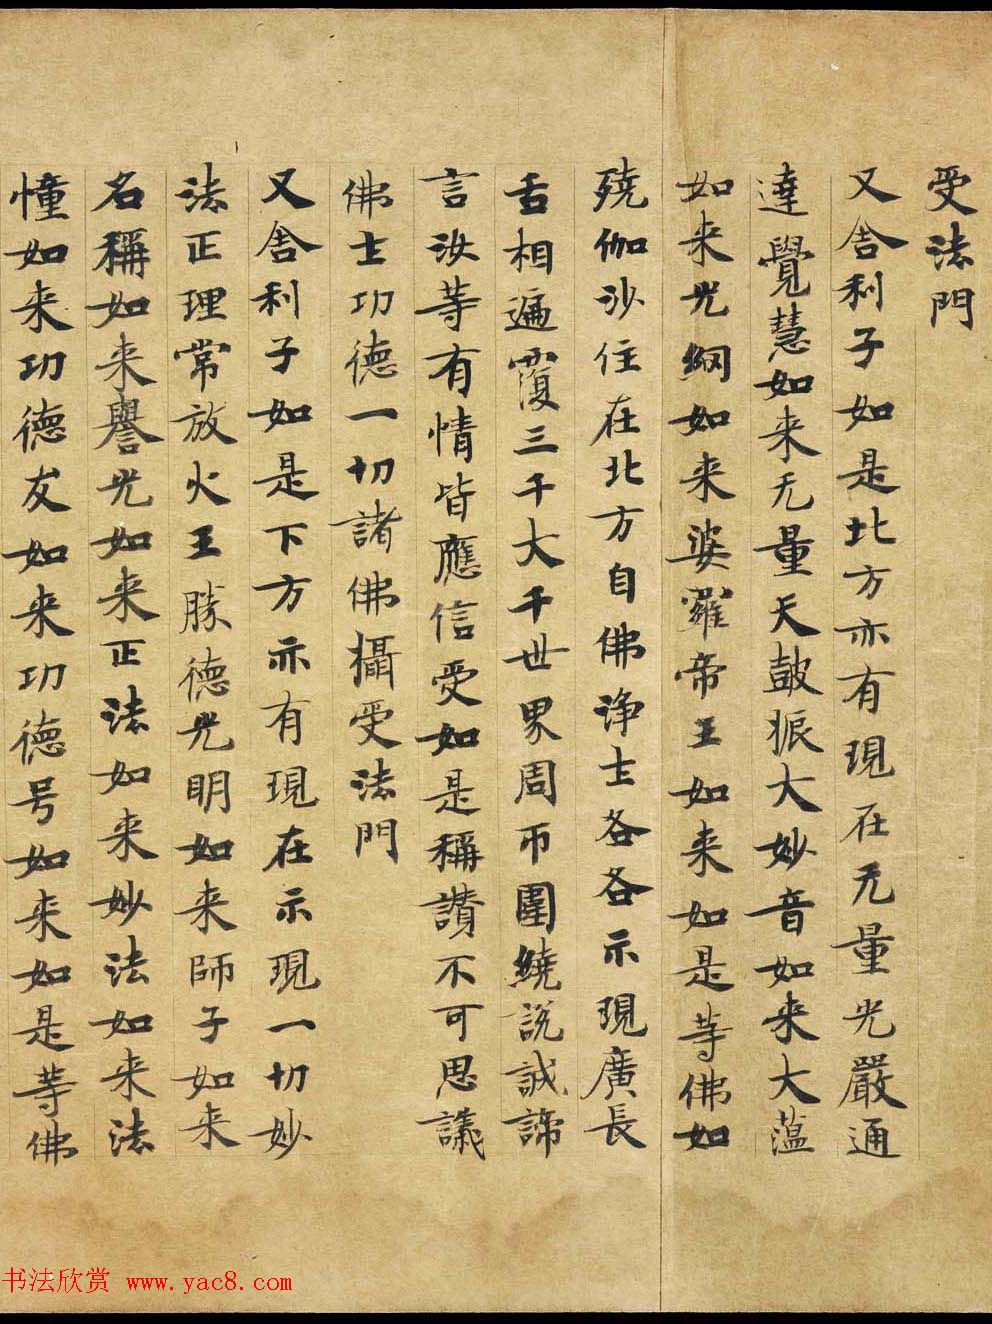 受法門
又舍利子如是北方亦有現在无量光嚴通
達覺慧如来无量天鼓振大妙音如来大蕴
如来光網如来娑羅帝王如来如是等佛如
殑伽沙住在北方自佛浄土各各示現廣長
舌相遍覆三千大千世界周帀圍繞説誠諦
言汝等有情皆應信受如是稱讃不可思議
佛土功德一切諸佛攝受法門
又舍利子如是下方亦有現在示現一切妙
法正理常放火王勝德光明如来師子如来
名稱如来譽光如来正法如来妙法如来法
幢如来功德友如来功德号如来如是等佛
书法欣赏 www.yac8.com